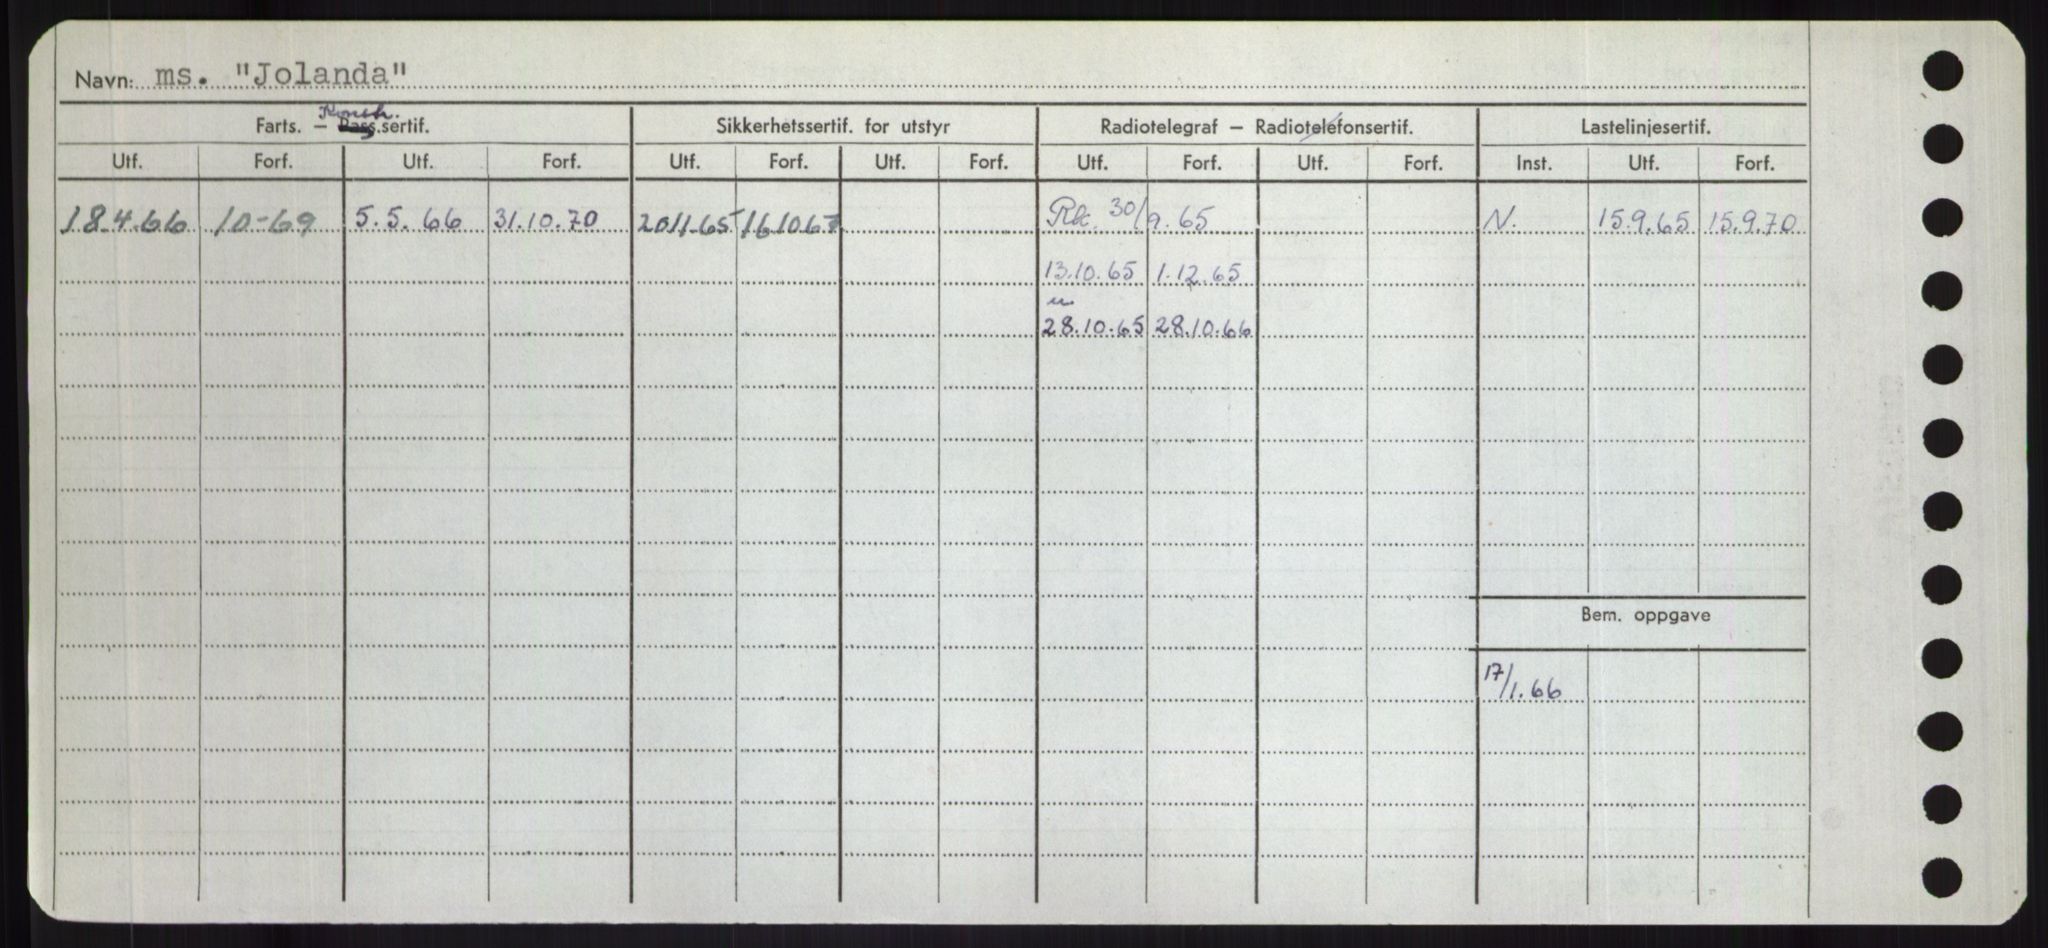 Navn: ms. "Jolanda"
Konstr.
Farts. — Pass.sertif. Sikkerhetssertif. for utstyr Radiotelegraf — Radiotelefonsertif. Lastelinjesertif.
Utf. Forf. Utf. Forf. Utf. Forf. Utf. Forf. Utf. Forf. Utf. Forf. Inst. Utf. Forf.
18.4.66 10-69 5.5.66 31.10.70 20.11.65 16.10.67 Rk. 30/9.65 N. 15.9.65 15.9.70
13.10.65 1.12.65
u
28.10.65 28.10.66
Bem. oppgave
17/1.66